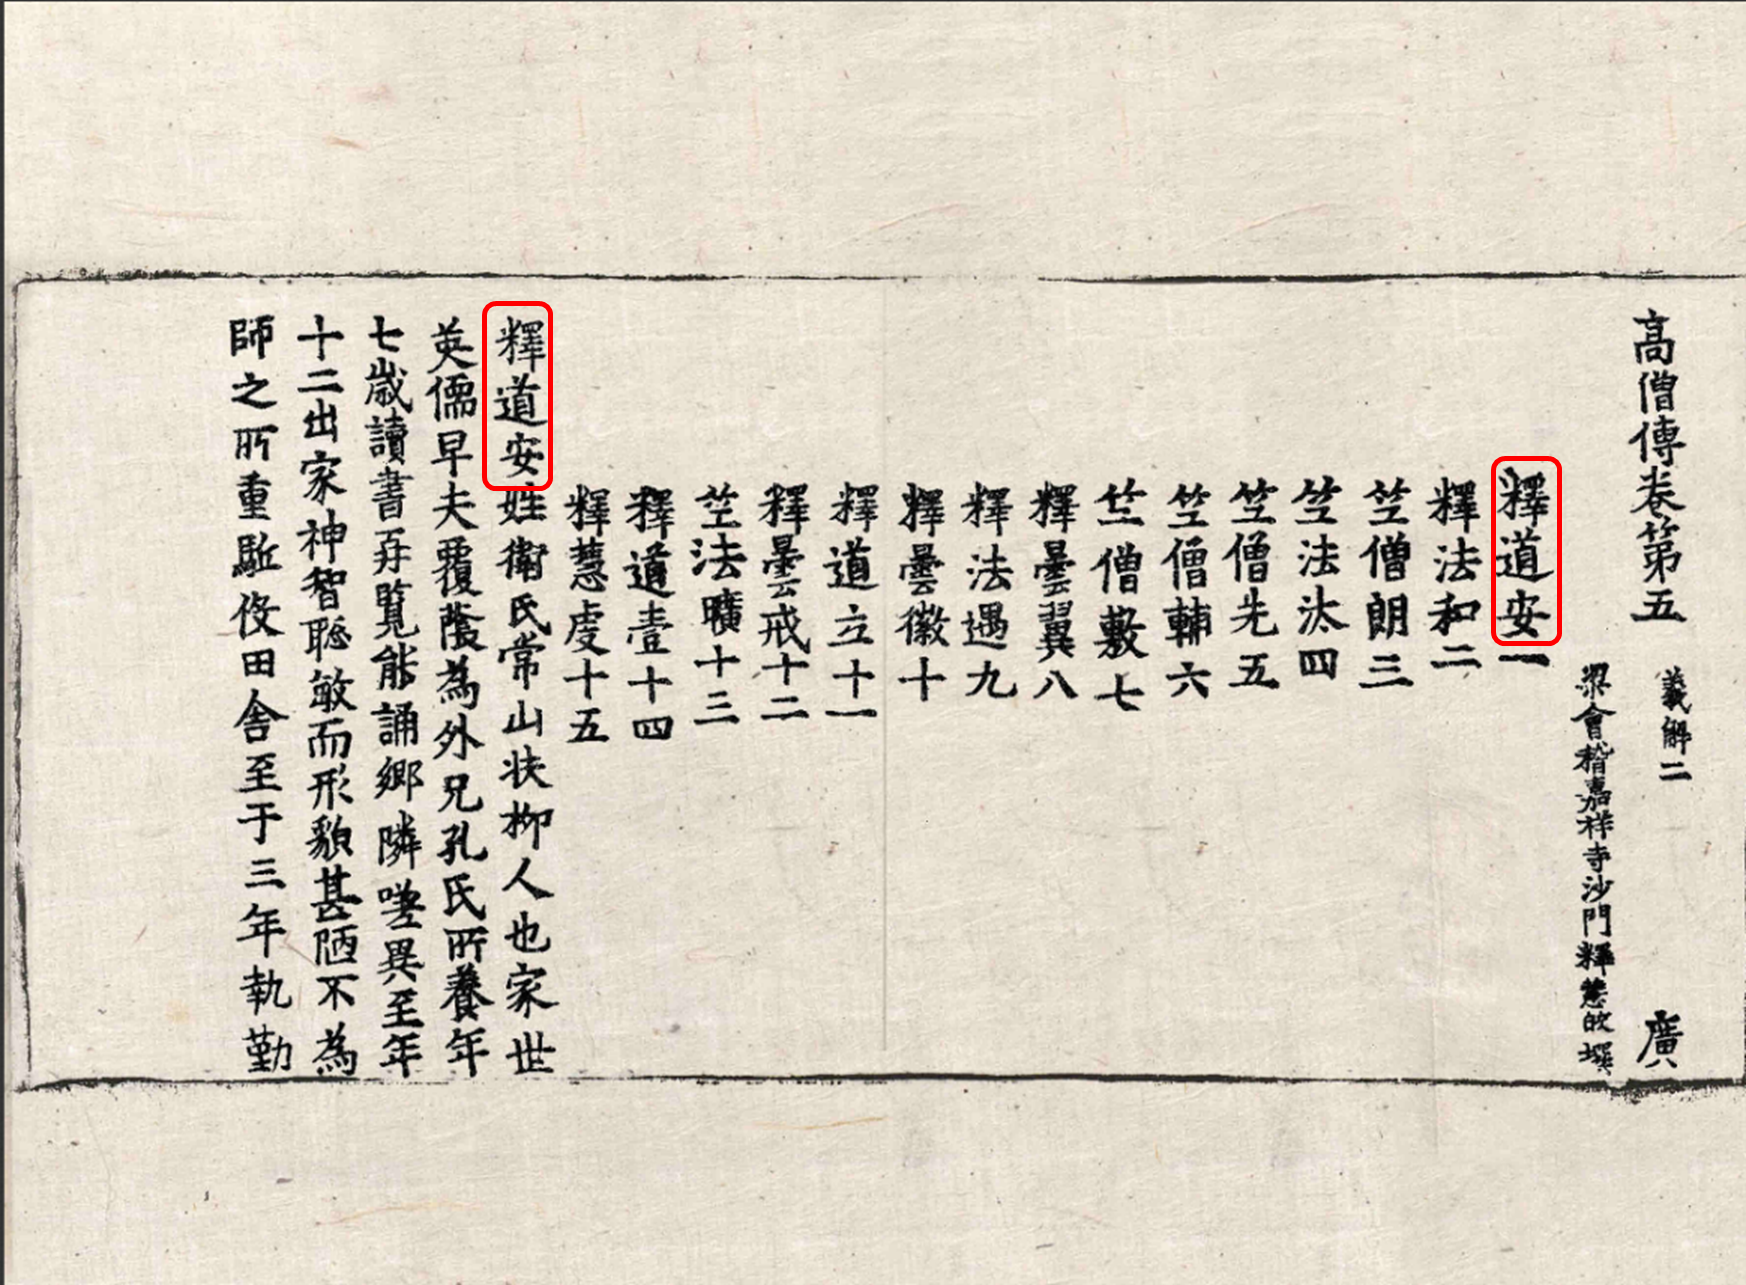 高僧傳卷第五 義解二 廣
梁會稽嘉祥寺沙門釋慧皎撰
釋道安一
釋法和二
竺僧朗三
竺法汰四
竺僧先五
竺僧輔六
竺僧敷七
釋曇翼八
釋法遇九
釋曇徽十
釋道立十一
釋曇戒十二
竺法曠十三
釋道壹十四
釋慧虔十五
釋道安姓衛氏常山扶柳人也家世
英儒早失覆蔭為外兄孔氏所養年
七歲讀書再覽能誦鄉隣嗟異至年
十二出家神智聰敏而形貌甚陋不為
師之所重駈伇田舍至于三年執勤